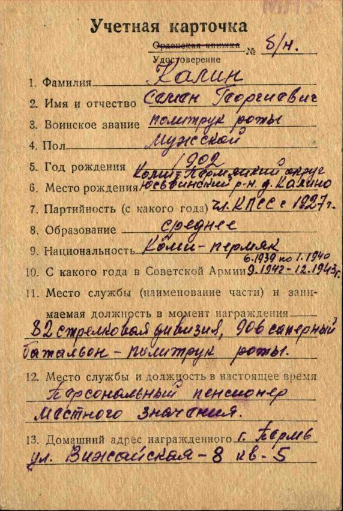 Учетная карточка
Орденская книжка № б/н.
Удостоверение
1. Фамилия Калин
2. Имя и отчество Семен Георгиевич
3. Воинское звание политрук роты
4. Пол Мужской
5. Год рождения 1902
Коми-Пермяцкий округ
6. Место рождения Юсьвинский р-н д. Калино
7. Партийность (с какого года) чл. КПСС с 1927 г.
8. Образование среднее
9. Национальность Коми-пермяк
6.1939 по 1.1940
10. С какого года в Советской Армии 9.1942-12.1943г.
11. Место службы (наименование части) и зани-
маемая должность в момент награждения
82 стрелковая дивизия, 906 саперный
батальон - политрук роты.
12. Место службы и должность в настоящее время
Персональный пенсионер
местного значения.
13. Домашний адрес награжденного г. Пермь
ул. Вижайская-8 кв-5